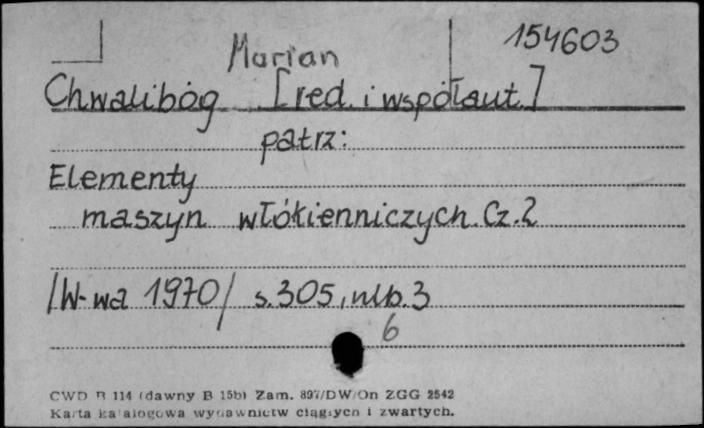 154603
Marian
Chwalibóg [red. i współaut.]
patrz:
Elementy
maszyn włókienniczych. Cz. 2
/W-wa 1970/ s. 305, nlb. 3
6
CWD B 114 (dawny B 15b) Zam. 897/DW/On ZGG 2542
Karta katalogowa wydawnictw ciągłych i zwartych.